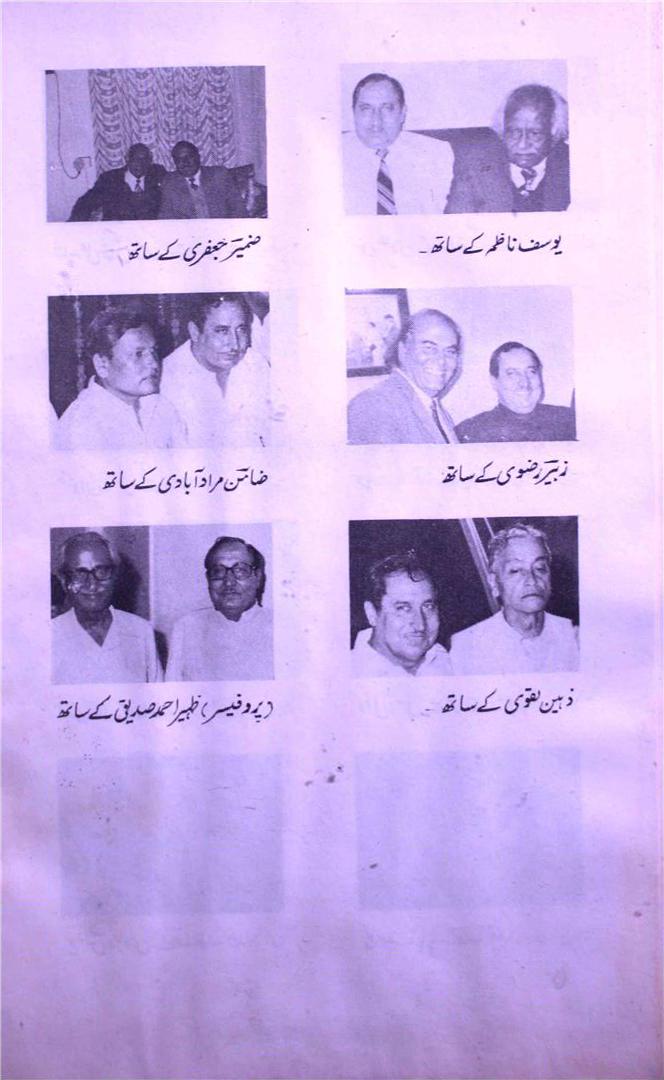 یوسف ناظم کے ساتھ۔
ضمیر جعفری کے ساتھ
زبیر رضوی کے ساتھ
ضامن مراد آبادی کے ساتھ
ذہین نقوی کے ساتھ۔
(پروفیسر) ظہیر احمد صدیقی کے ساتھ